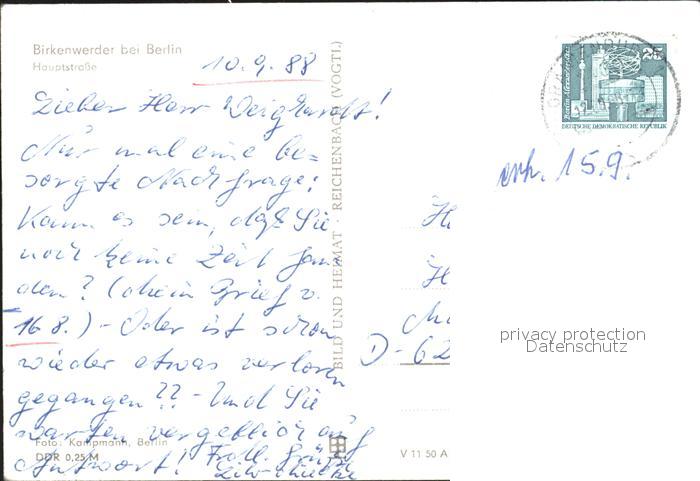 Birkenwerder bei Berlin
Hauptstraße
10.9.88
Lieber Herr Weighardt!
Nur mal eine be=
sorgte Nachfrage:
Kann es sein, daß Sie
noch keine Zeit fan=
den? (Mein Brief v.
16.8.) - Oder ist schon
wieder etwas verloren
gegangen?? - Und Sie
warten vergeblich auf
Antwort! Frdl. Grüße
Foto: Kampmann, Berlin
DDR 0,25 M
BILD UND HEIMAT · REICHENBACH (VOGTL.)
V 11 50 A
25
Berlin, Alexanderplatz
DEUTSCHE DEMOKRATISCHE REPUBLIK
erh. 15.9.
D-62
privacy protection
Datenschutz